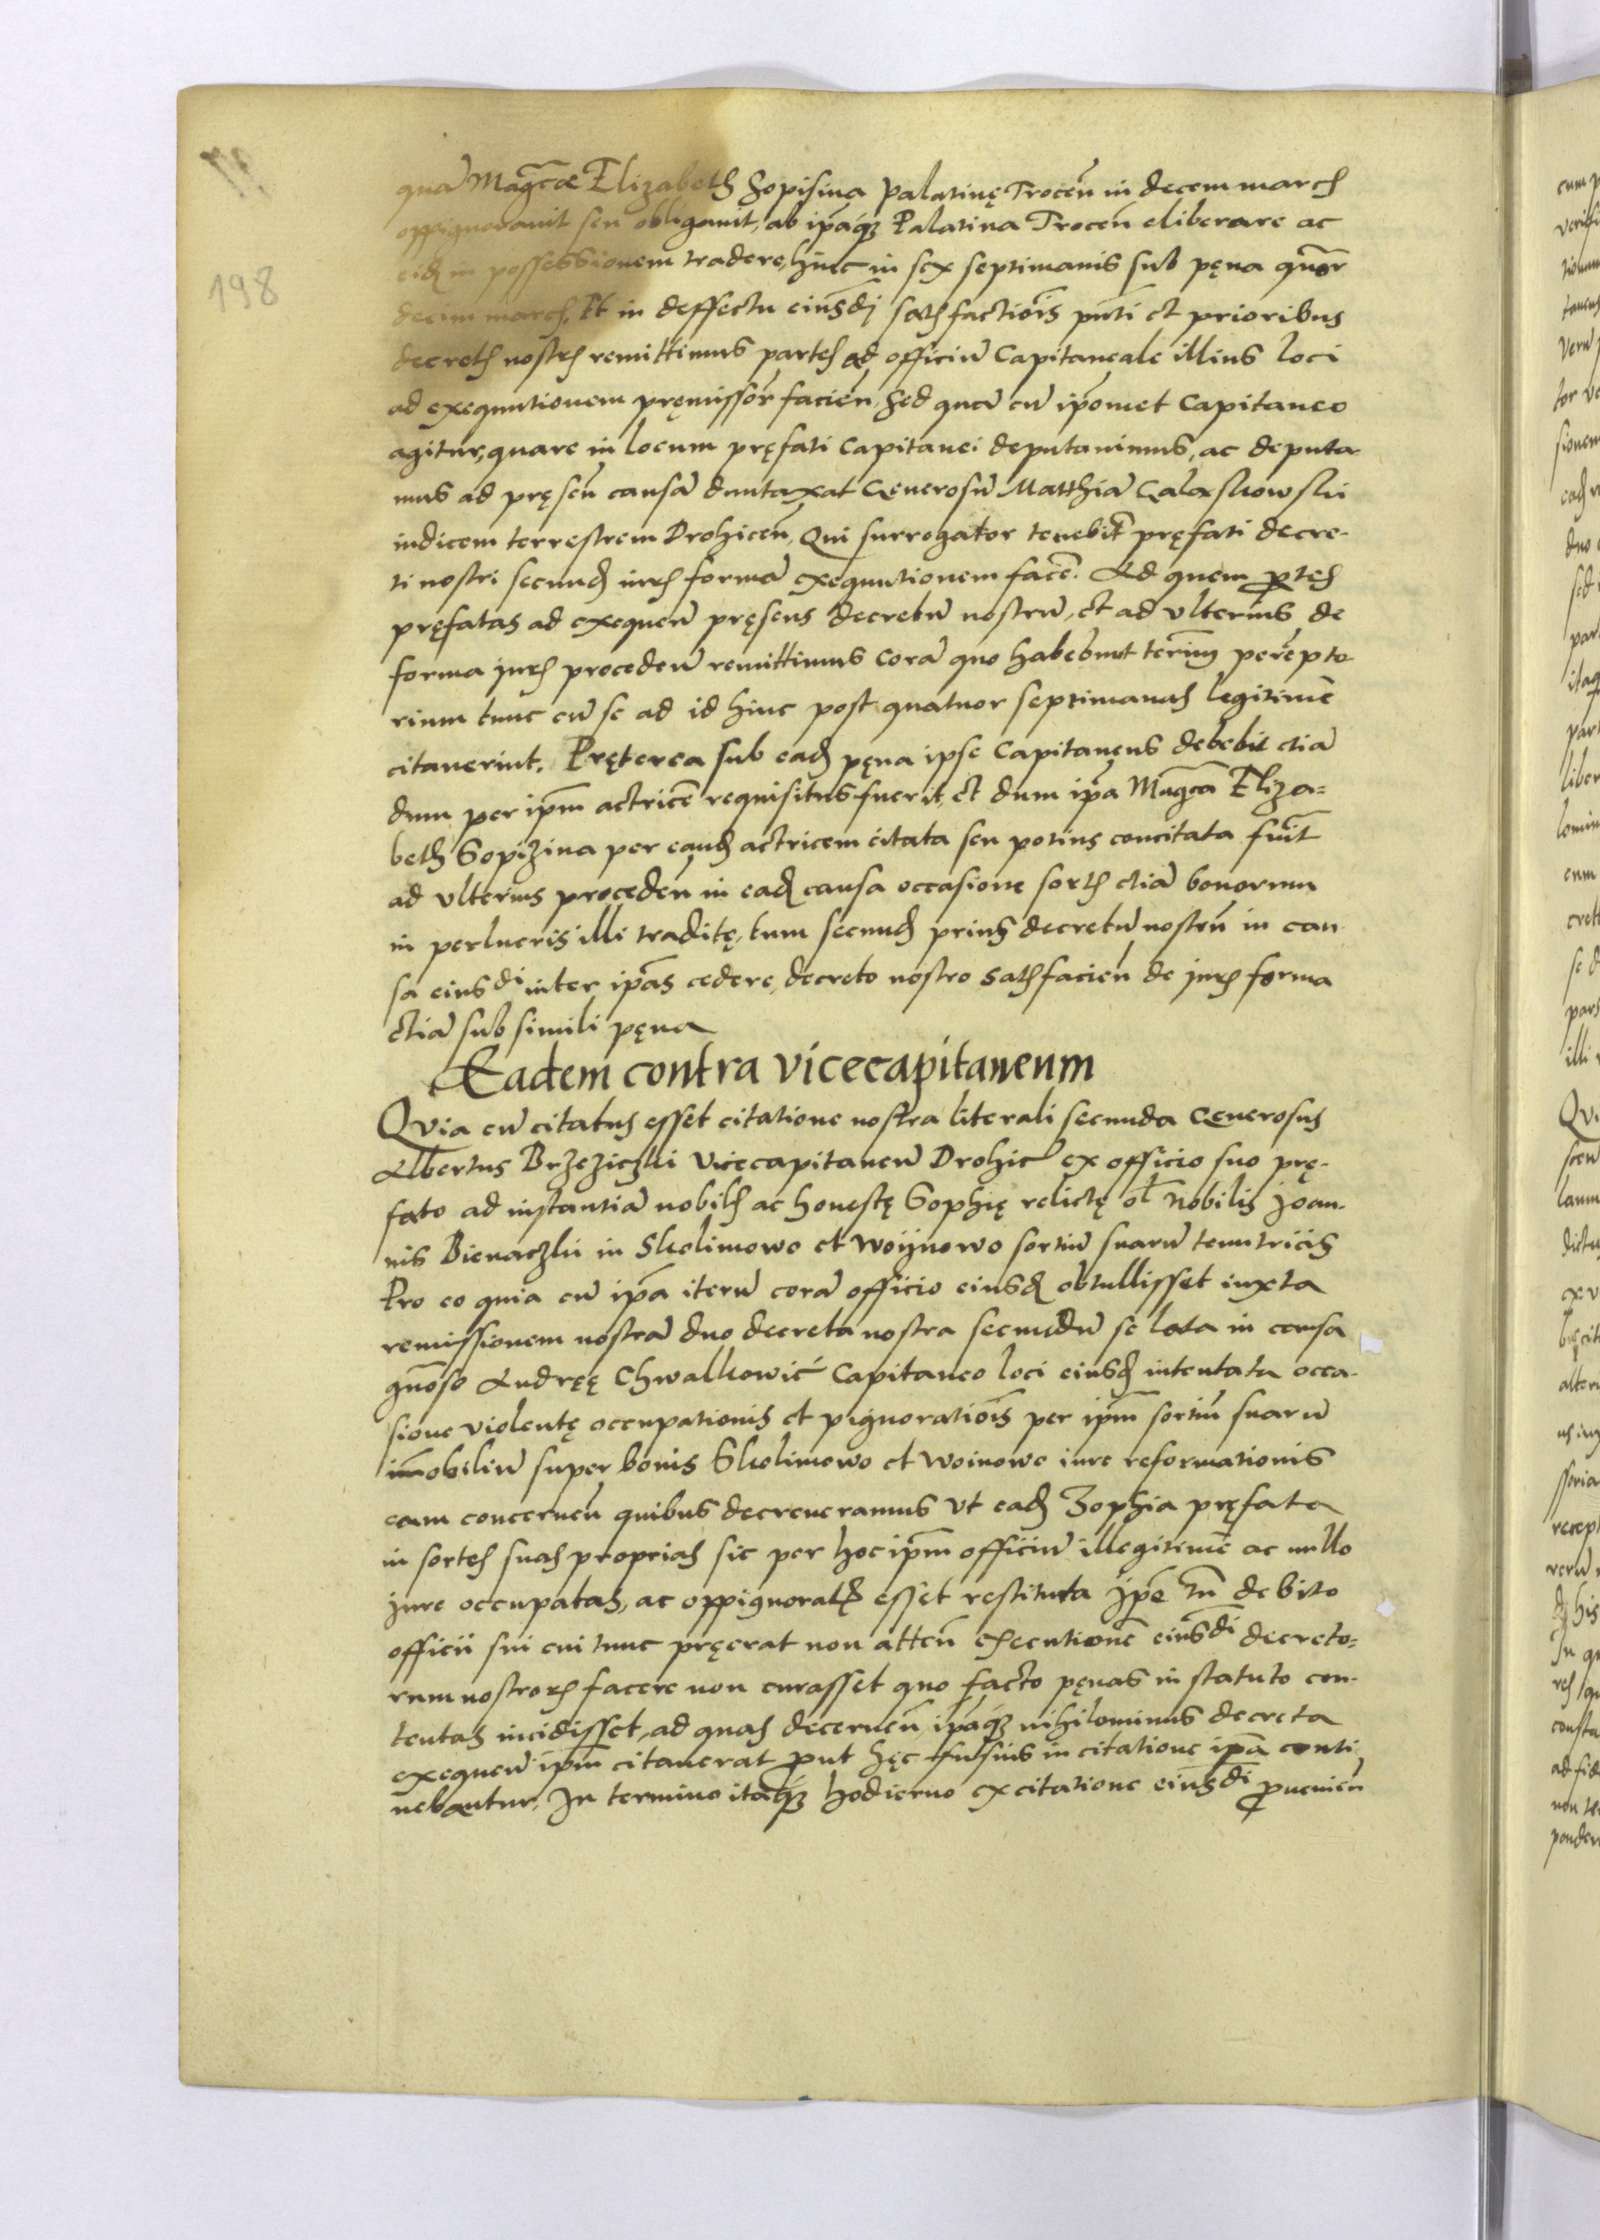 198
quā Magcæ Elizabeth Sopisina Palatinę Trocen̄ in decem march
oppignorauit seu obligauit, ab ipāq3 Palatina Trocen̄ eliberare ac
eid in possessionem tradere, hinc in sex septimanis sub pęna quor
decim march. Et in deffectu eiusdj satisfactiōis pnti et prioribus
decretis nostris remittimus partes ad officiū Capitaneale illius loci
ad exequutionem pręmissor facien̄, Sed quā cū ipomet Capitaneo
agitur, quare in locum pręfati Capitanei deputauimus, ac deputa-
mus ad pręsen̄ causā duntaxat Generosū Matthiā Galaskowski
iudicem terrestrem Drohicen̄, Qui surrogator tenebit pręfati decre-
ti nostri secund iuris formā exequutionem facē. Ad quem ptes
pręfatas ad exequen̄ pręsens decretū nostrū, et ad vlterius de
forma juris proceden̄ remittimus corā quo habebunt termī perēpto-
rium tunc cū se ad id hinc post quatuor septimanas legitimē
citauerint. Pręterea sub ead pęna ipse Capitaneus debebit etiā
dum per ipm actricē requisitus fuerit, et dum ipa Magca Eliza=
beth Sopizina per eand actricem citata seu potius concitata fuit
ad vlterius proceden̄ in ead causa occasione sortis etiā bonorum
in perlucris illi traditę, tum secund prius decretū nostrū in cau-
sa eiusdi inter ipas cedere, decreto nostro satisfacien̄ de juris forma
etiā sub simili pęna
Eadem contra vicecapitaneum
Qvia cū citatus esset citatione nostra literali secunda Generosus
Albertus Brzeziczki Vicecapitaneū Drohic ex officio suo prę-
fato ad instantiā nobilis ac honestę Sophię relictę ol Nobilis Joan-
nis Bienaczki in Skolimowo et Woijnowo sortiū suarū tenutricis
Pro eo quia cū ipa iterū corā officio eiusd obtullisset iuxta
remissionem nostrā duo decreta nostra secundū se lata in causa
gnoso Andręę Chwalkowic Capitaneo loci eiusd intentata occa-
sione violentę occupationis et pignoratiōis per ipm sortiū suarū
im̄obiliū super bonis Skolimowo et Woinowo iure reformationis
eam concernen̄ quibus decreueramus Vt ead Zophia pręfata
in sortes suas proprias sic per hoc ipm officiū illegitimē ac nullo
jure occupatas, ac oppignoratas esset restituta Jpe tn̄ debito
officii sui cui tunc pręerat non atten̄ executionē eiusdi decreto=
rum nostrorum facere non curasset quo facto pęnas in statuto con-
tentas incidisset, ad quas decernen̄, ipaq3 nihilominus decreta
exequen̄ ipm citauerat put hęc fusius in citatione ipā conti-
nebantur, In termino itaq3 hodierno ex citatione eiusdi puenien̄